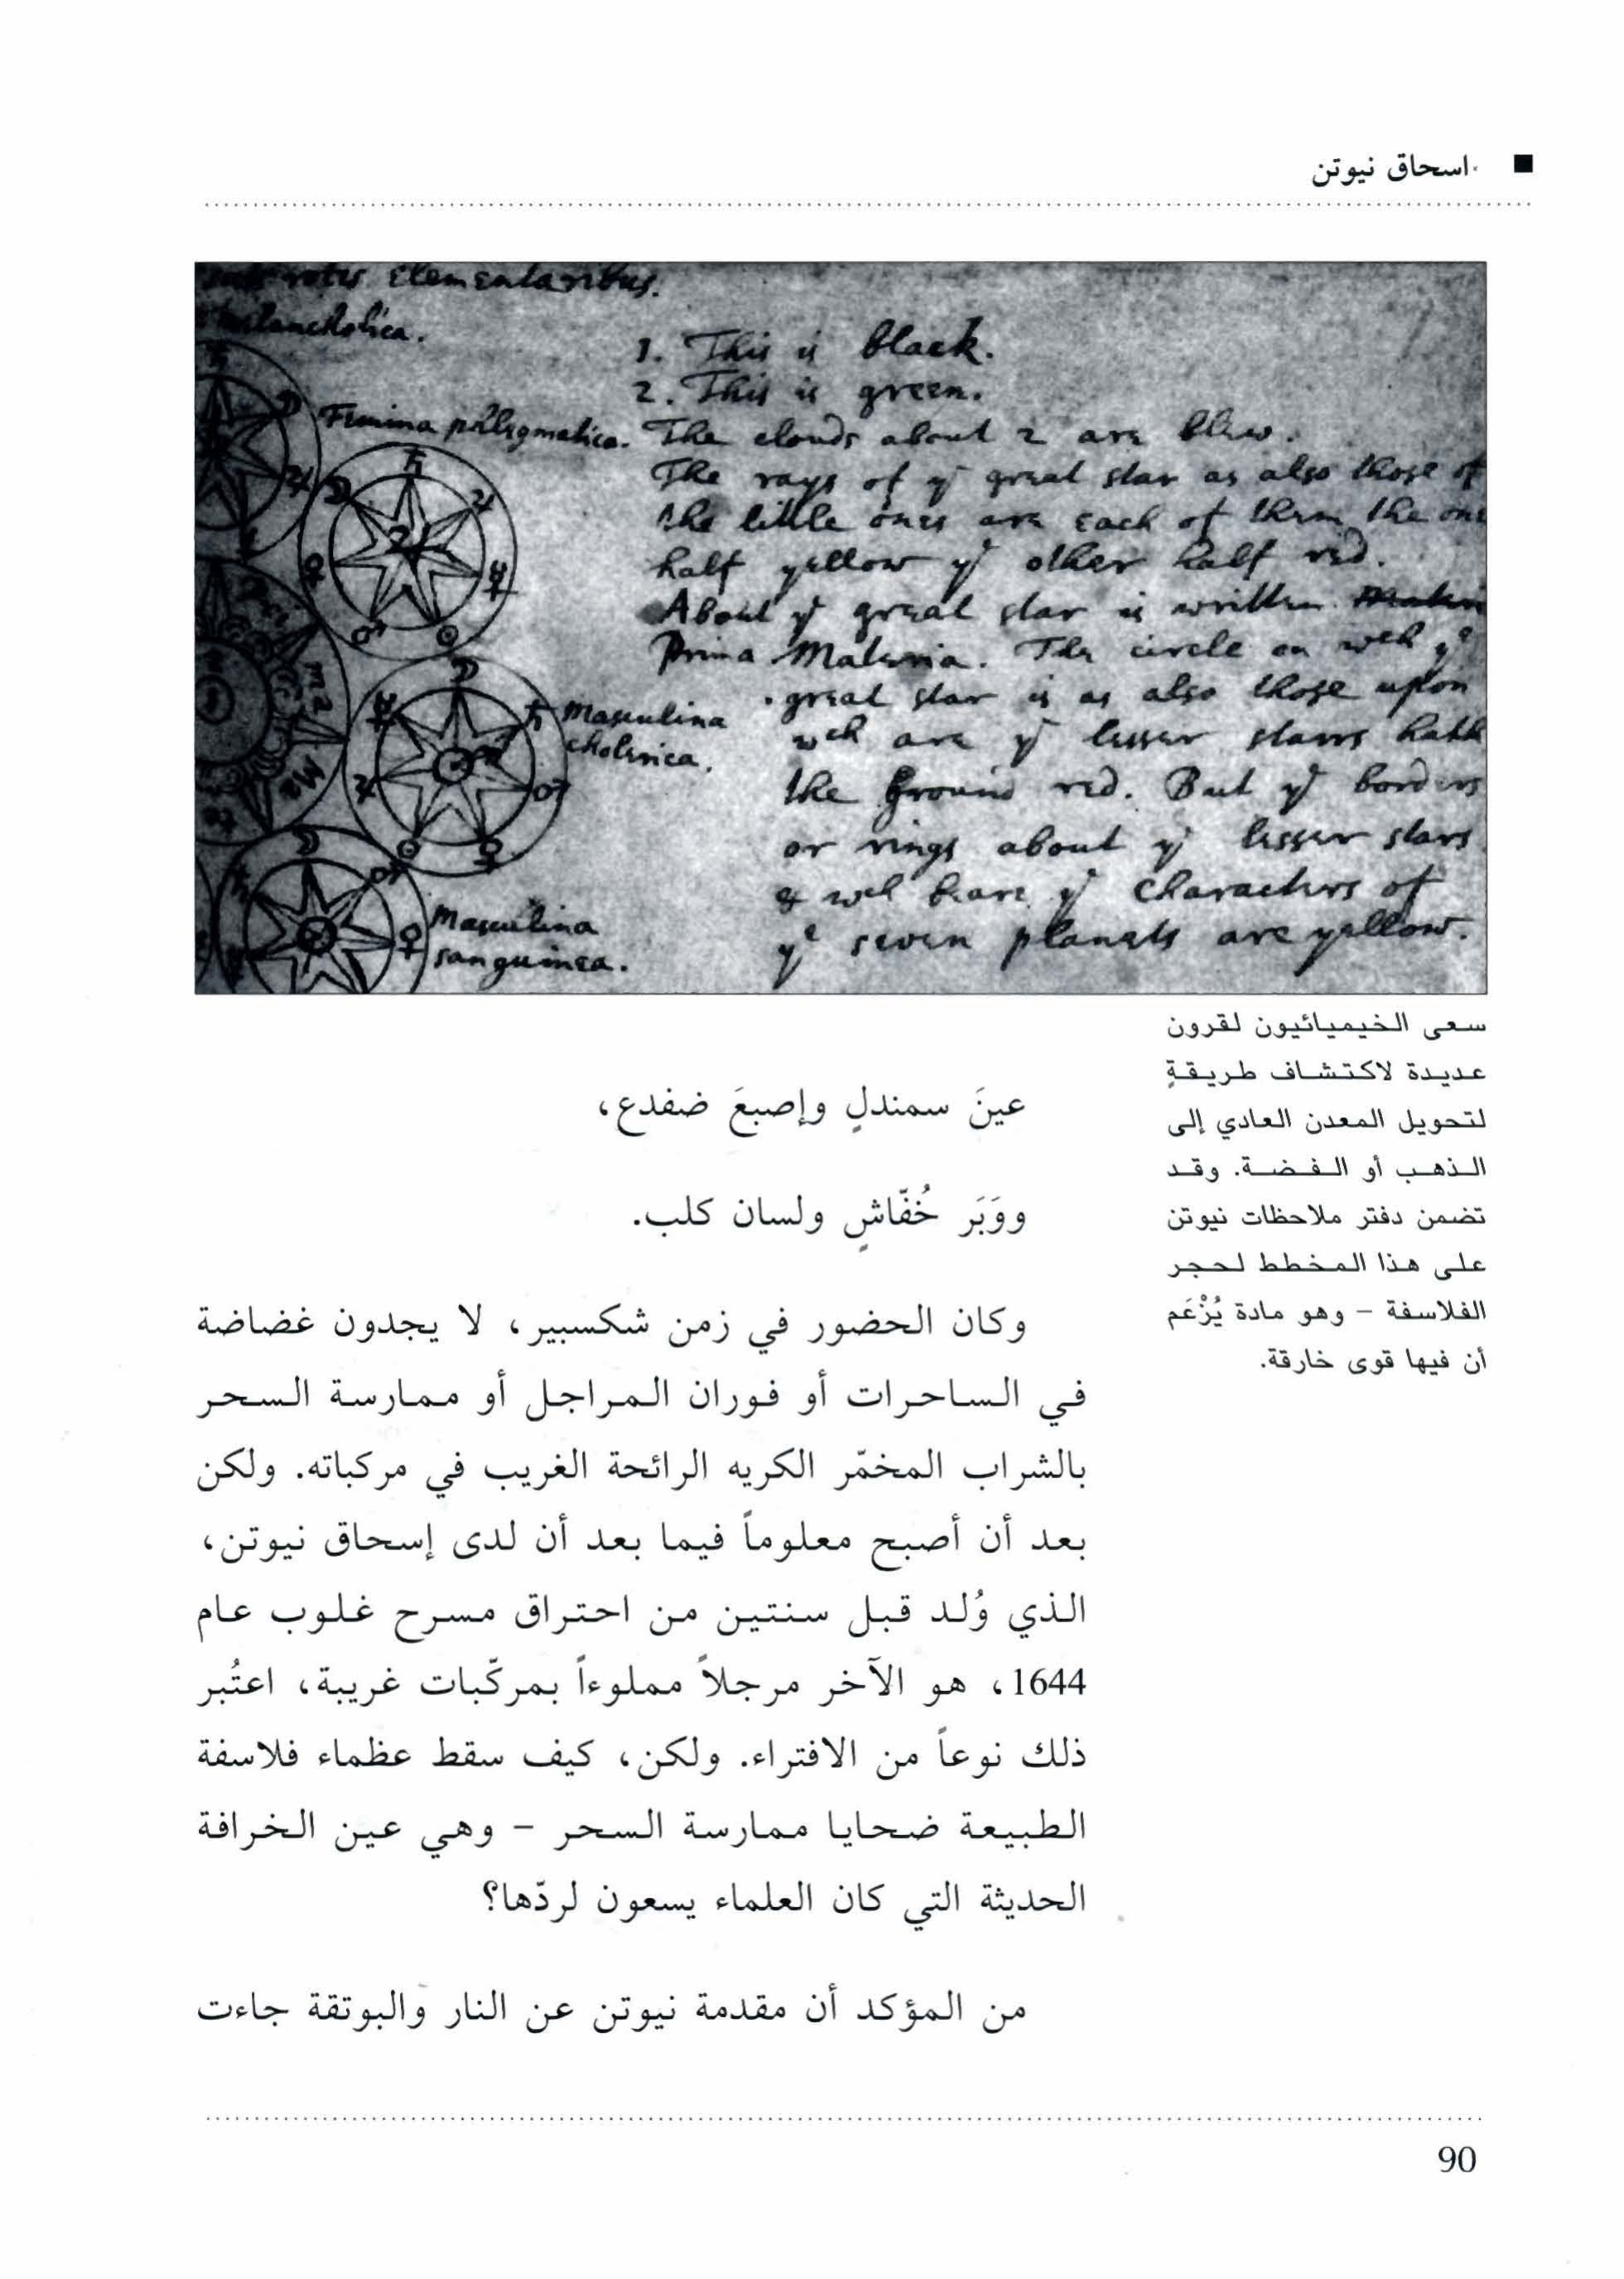 اسحاق نيوتن
notis Elementaribus.
Melancholica.
1. This is black.
2. This is green.
Femina phlegmatica.
The clouds about 2 are blew.
The rays of ye great star as also those of
the little ones are each of them the one
half yellow ye other half red.
About ye great star is written
Prima Materia. The circle on wch ye
great star is as also those upon
wch are ye lesser starrs hath
the Ground red. But ye borders
or rings about ye lesser stars
& wch beare ye Characters of
ye seven planets are yellow.
Masculina
cholerica.
Masculina
sanguinea.
سعى الخيميائيون لقرون
عديدة لاكتشاف طريقةٍ
لتحويل المعدن العادي إلى
الذهب أو الفضة. وقد
تضمن دفتر ملاحظات نيوتن
على هذا المخطط لحجر
الفلاسفة – وهو مادة يُزْعَم
أن فيها قوى خارقة.
عينَ سمندلٍ وإصبعَ ضفدع،
ووَبَر خُفّاشٍ ولسان كلب.
وكان الحضور في زمن شكسبير، لا يجدون غضاضة
في الساحرات أو فوران المراجل أو ممارسة السحر
بالشراب المخمّر الكريه الرائحة الغريب في مركباته. ولكن
بعد أن أصبح معلوماً فيما بعد أن لدى إسحاق نيوتن،
الذي وُلد قبل سنتين من احتراق مسرح غلوب عام
1644، هو الآخر مرجلاً مملوءاً بمركّبات غريبة، اعتُبر
ذلك نوعاً من الافتراء. ولكن، كيف سقط عظماء فلاسفة
الطبيعة ضحايا ممارسة السحر – وهي عين الخرافة
الحديثة التي كان العلماء يسعون لردّها؟
من المؤكد أن مقدمة نيوتن عن النار والبوتقة جاءت
90